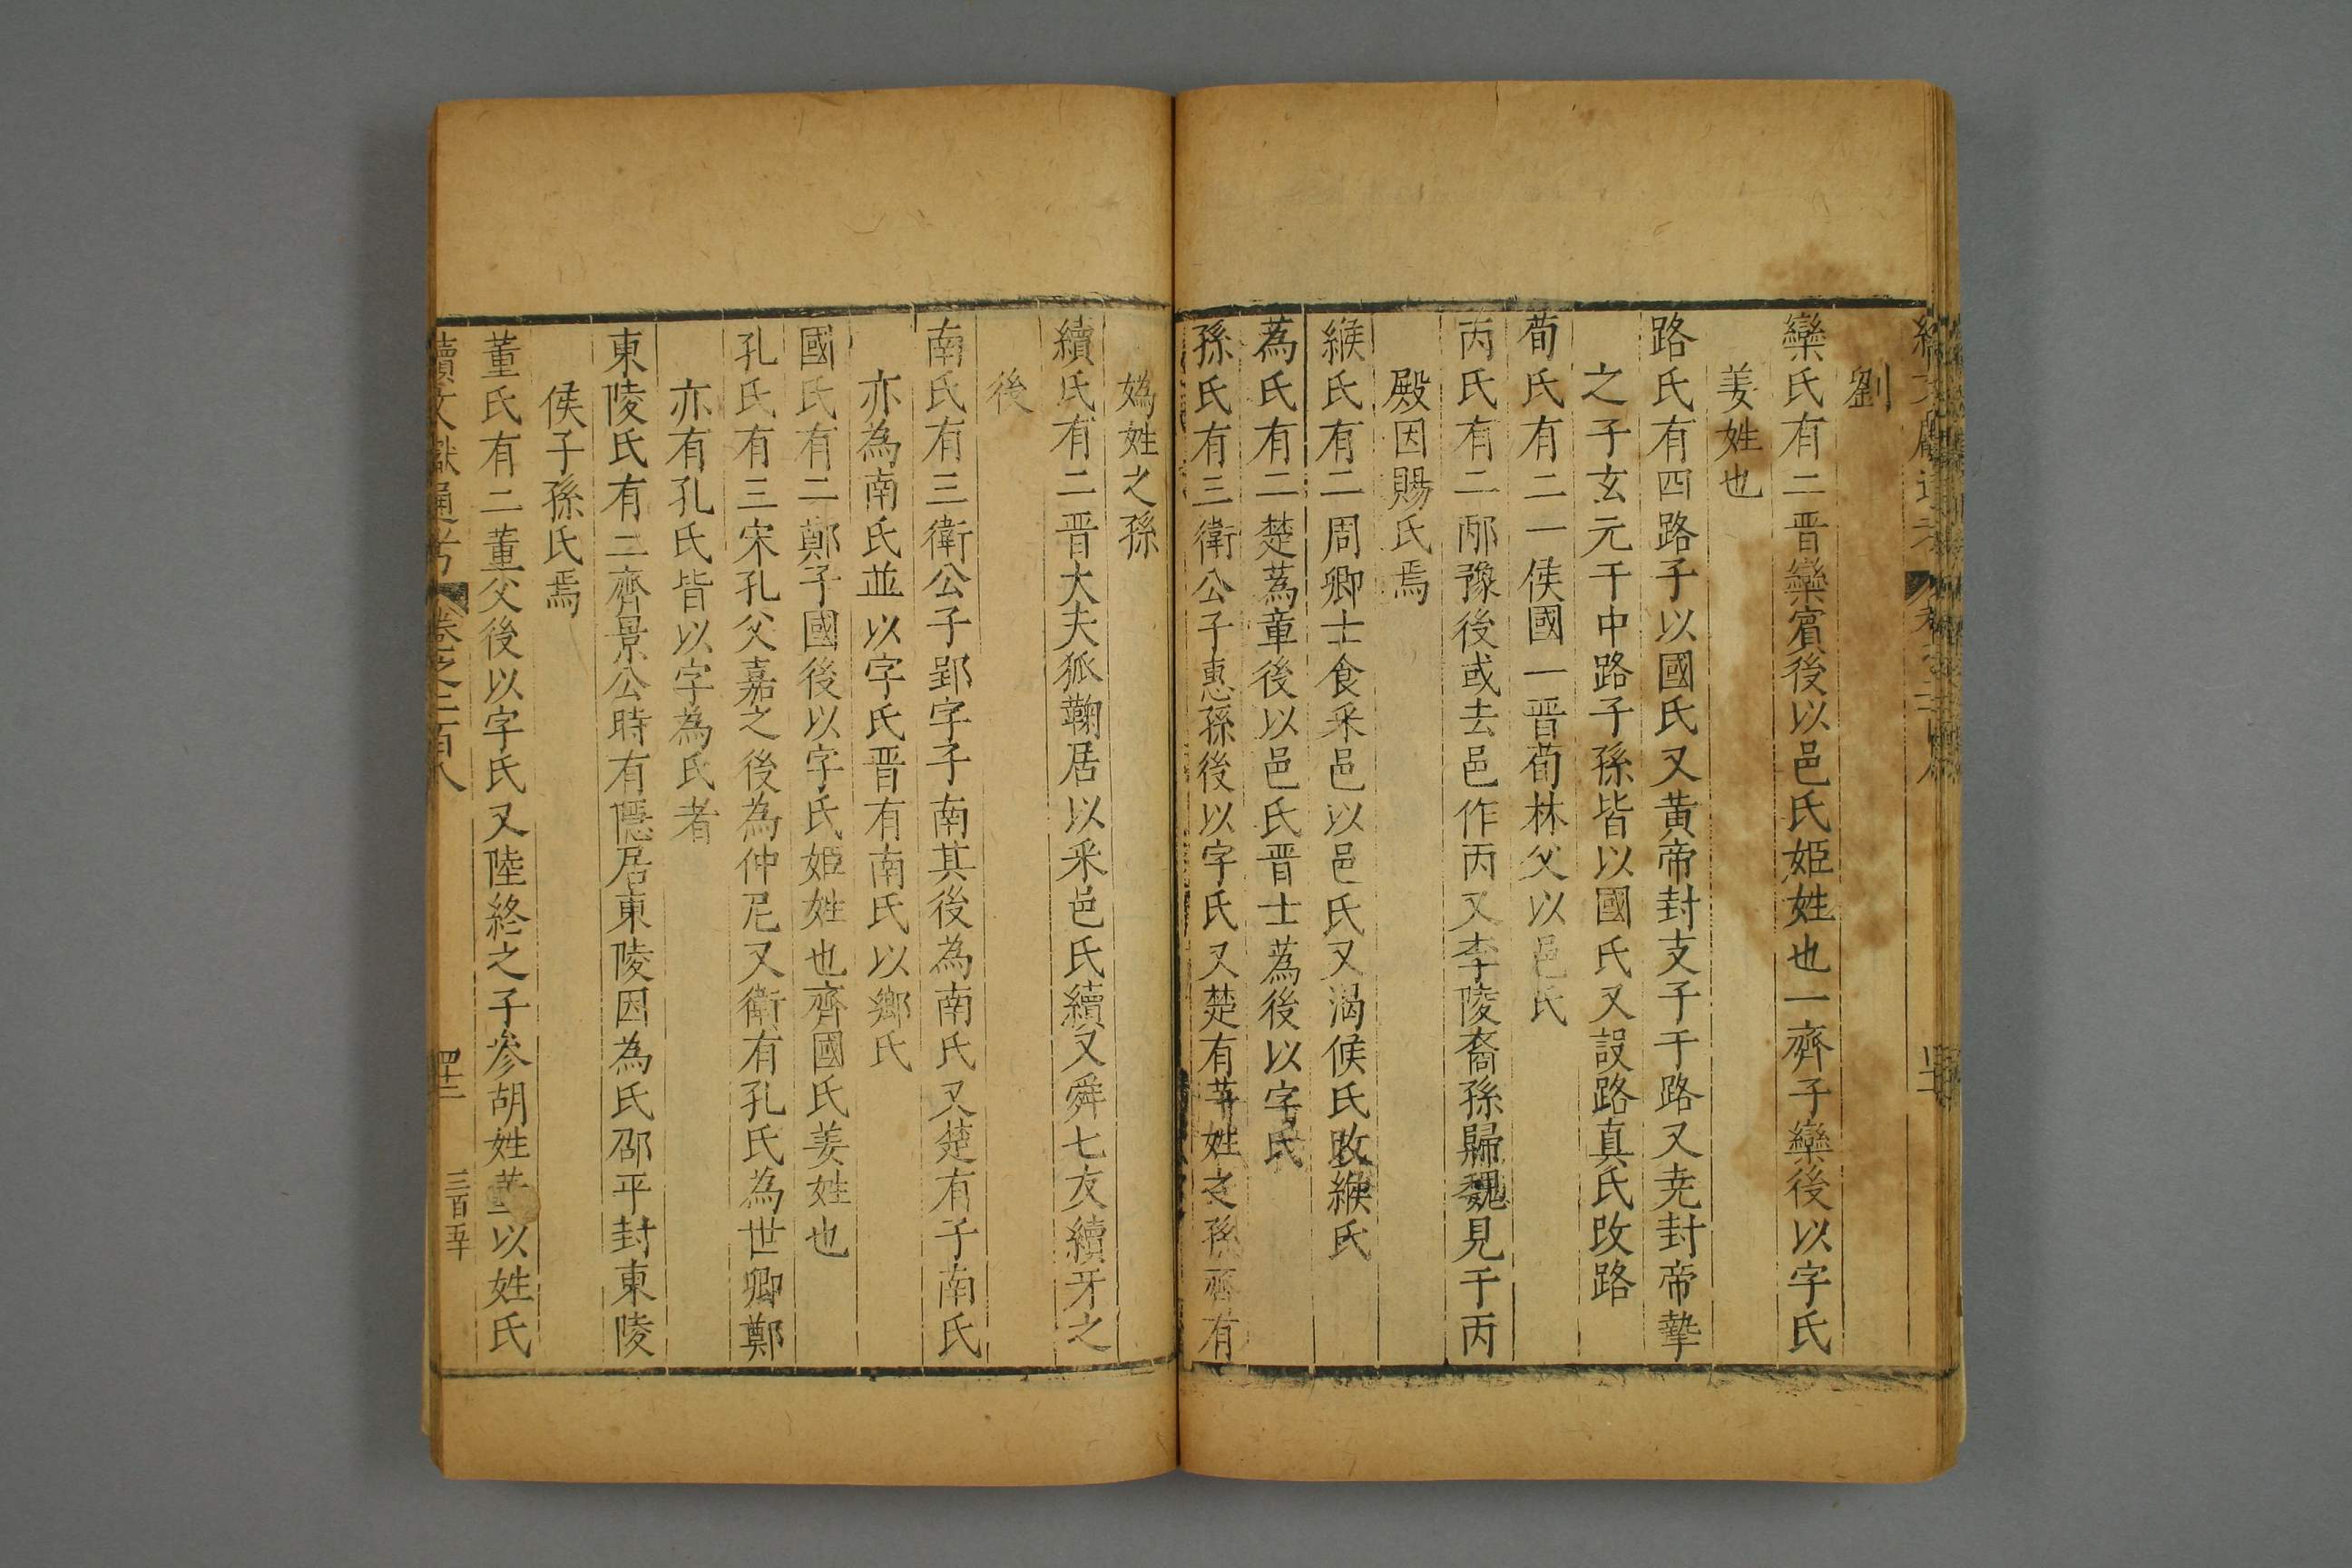 劉
欒氏有二晋欒賓後以邑氏姬姓也一齊子欒後以字氏
姜姓也
路氏有四路子以國氏又黃帝封支子于路又尭封帝摯
之子玄元于中路子孫皆以國氏又設路真氏改路
荀氏有二一侯國一晋荀林父以邑氏
丙氏有二邴豫後或去邑作丙又李陵裔孫歸魏見于丙
殿因賜氏焉
緱氏有二周卿士食采邑以邑氏又渴候氏改緱氏
蒍氏有二楚蒍章後以邑氏晋士蒍後以字氏
孫氏有三衛公子惠孫後以字氏又楚有芊姓之孫齊有
嬀姓之孫
續氏有二晋大夫狐鞠居以采邑氏續又舜七友續牙之
後
南氏有三衛公子郢字子南其後為南氏又楚有子南氏
亦為南氏並以字氏晋有南氏以鄉氏
國氏有二鄭子國後以字氏姬姓也齊國氏姜姓也
孔氏有三宋孔父嘉之後為仲尼又衛有孔氏為世卿鄭
亦有孔氏皆以字為氏者
東陵氏有二齊景公時有隱居東陵因為氏邵平封東陵
侯子孫氏焉
董氏有二董父後以字氏又陸終之子參胡姓董以姓氏
續文獻通考 卷之二百八 四十二 三百五十